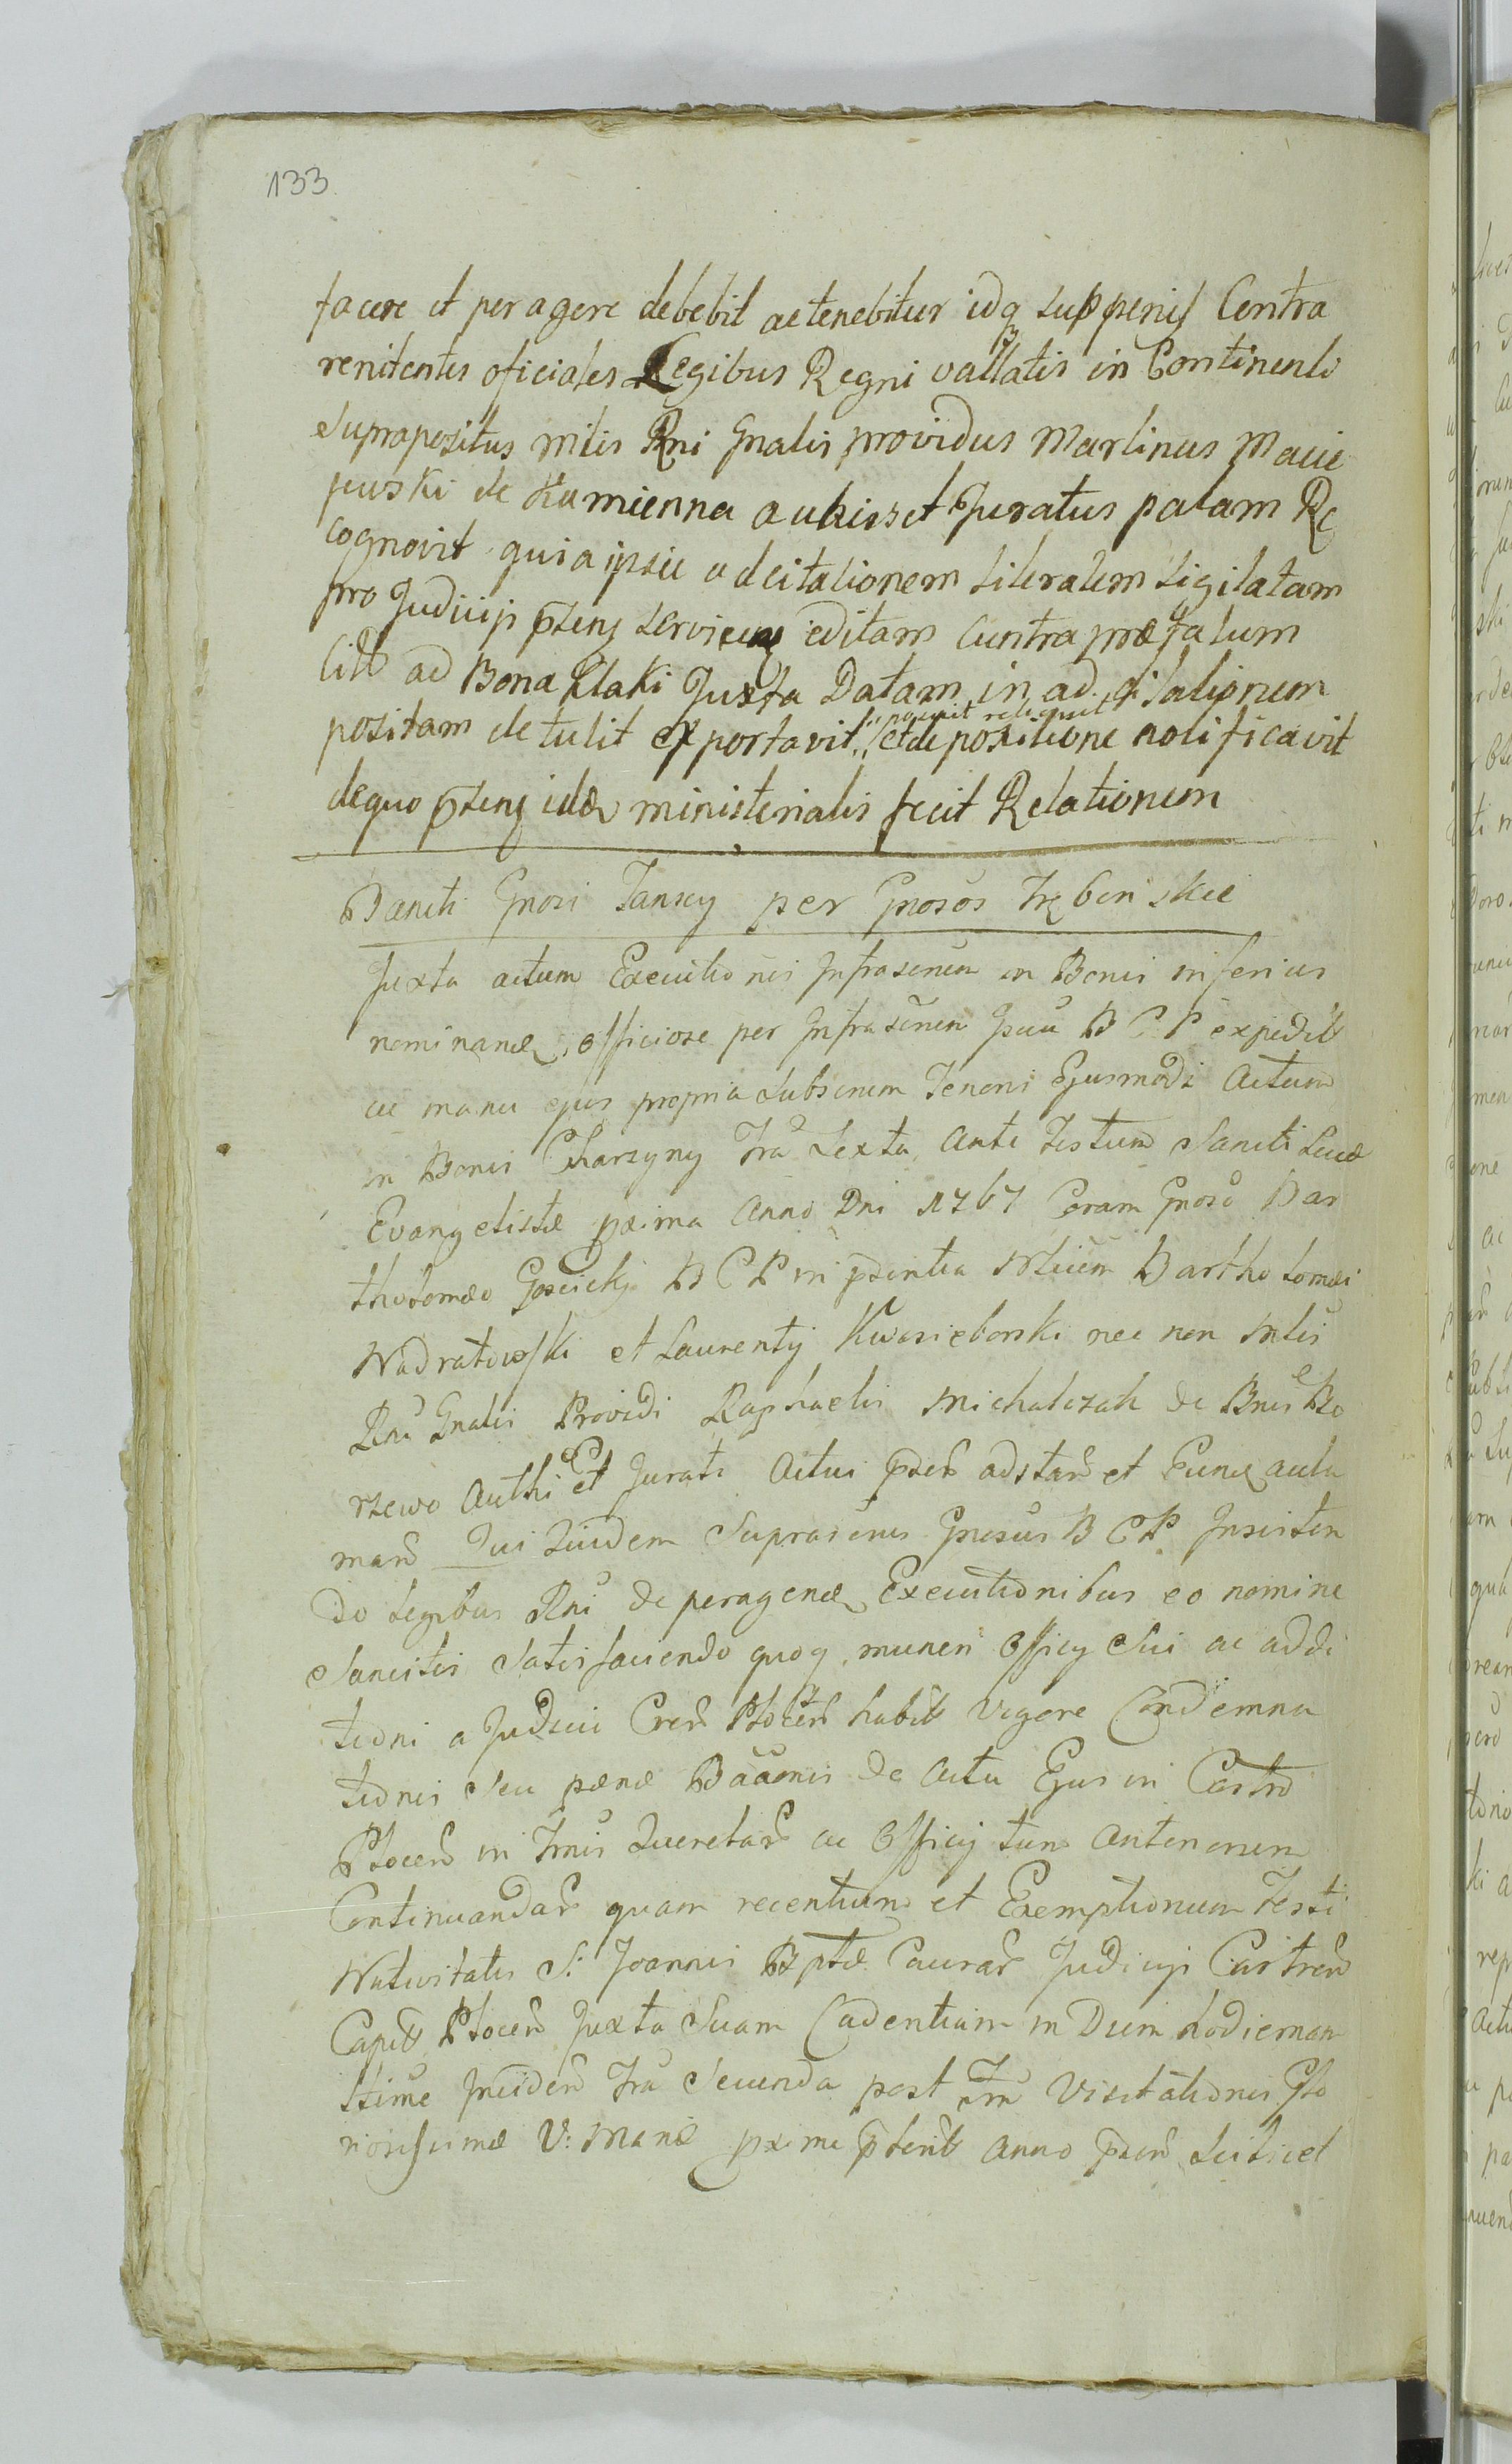 133
facere et peragere debebit ac tenebitur idq sub penis Contra
renitentes oficiales Legibus Regni vallatis in Continenti
Suprapositus mtis Rni Gnalis providus Martinus Macie
jwski de Kamienna authiset Juratus palam Re
cognovit quia ipse adcitationem Literalem Sigilatam
pro Judicijs pstens servieng editam Contra præfatum
Citt ad Bona Ktaki Juxta Datam in ad citalionem
posuit reliquit
positam detulit exportavit et de positione notificavit
dequo pstens idem ministerialis fecit Relationem
Bancti Gnosi Jansey per Gnosos Trębin skie
Juxta actum Executionis Infrascnem in Bonis inferius
nominand officiose per Infrascnem Gnum B C P expedit
ac manu ejus propria Subscnem Tenoris Ejusmodi Actum
in Bonis Charzyny Fra Sexta ante Festum Sancti Lucæ
Evangelistæ pxima Anno Dni 1767 Coram Gnoso Bar
tholomæo Gościcki B C P in psentia Nbliem Bartholomæi
Nadratowski et Laurentij Kwasieborski nec non mtis
Rni Gnalis Providi Raphaelis Michalczak de Bnis Bo
rzewo Authi et Jurati Actui psen adstan et Eund aula
man Qui quidem Suprascnus Gnosus B C P Insisten
do legibus Rni de peragend Executionibus eo nomine
Sancitis Satisfaciendo quoq muneri Officij Sui ac addi
tioni a Judicii Cren Plocen habit vigore Condemna
tionis Seu pænæ Baaonis de Actu Ejus in Castro
Plocen in Tmis Querelar ac Officij tum Antenorum
Continuandar quam recentium et Exemptionum Festi
Nativitatis S. Joannis Bptæ Causar Judicijs Castren
Capit Plocen Juxta Suam Cadentiam in Diem hodiernam
Stime Inciden Fra Secunda post Fm Visitationis Glo
riosissimæ V: Mariæ pxime pterit Anno psen Scilicet